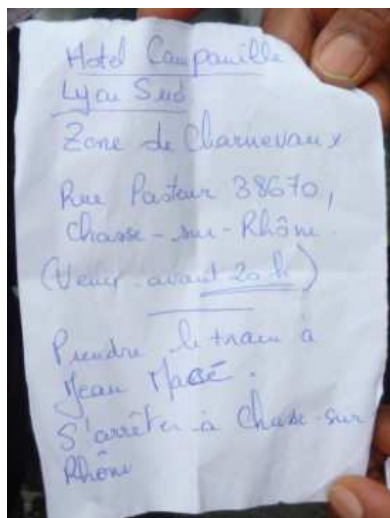 Hotel Campanille
Lyon Sud
Zone de Charnevaux
Rue Pasteur 38670,
Chasse-sur-Rhône.
(Venir avant 20h)
Prendre le train à
Jean Macé.
S'arrêter à Chasse-sur
Rhône